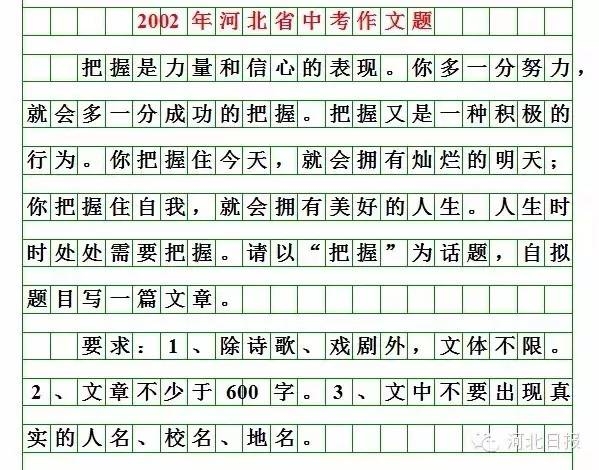 2002年河北省中考作文题
把握是力量和信心的表现。你多一分努力，
就会多一分成功的把握。把握又是一种积极的
行为。你把握住今天，就会拥有灿烂的明天；
你把握住自我，就会拥有美好的人生。人生时
时处处需要把握。请以“把握”为话题，自拟
题目写一篇文章。
要求：1、除诗歌、戏剧外，文体不限。
2、文章不少于600字。3、文中不要出现真
实的人名、校名、地名。
河北日报